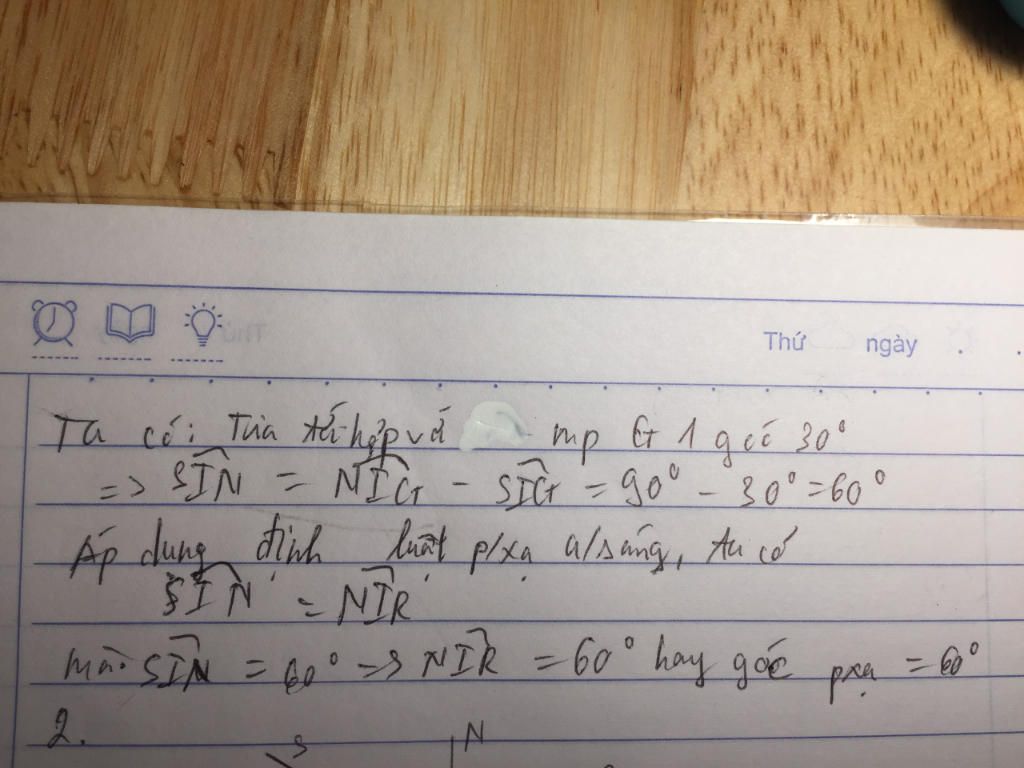 Thứ ngày
Ta có: Tia tới hợp với mp G 1 góc 30°
=> SIN = NIG - SIG = 90° - 30° = 60°
Áp dụng định luật p/xạ a/sáng, ta có
SIN = NIR
mà SIN = 60° => NIR = 60° hay góc pxạ = 60°
2.
S N